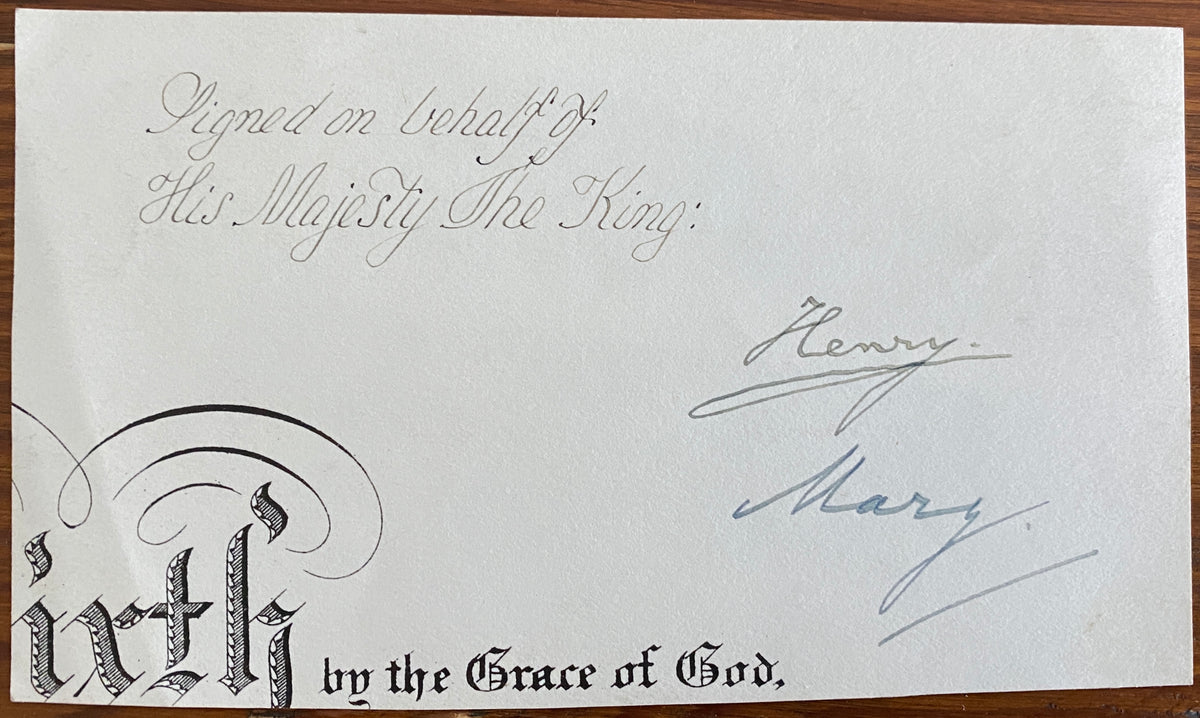 Signed on behalf of
His Majesty The King:
Henry.
Mary.
ixth by the Grace of God,